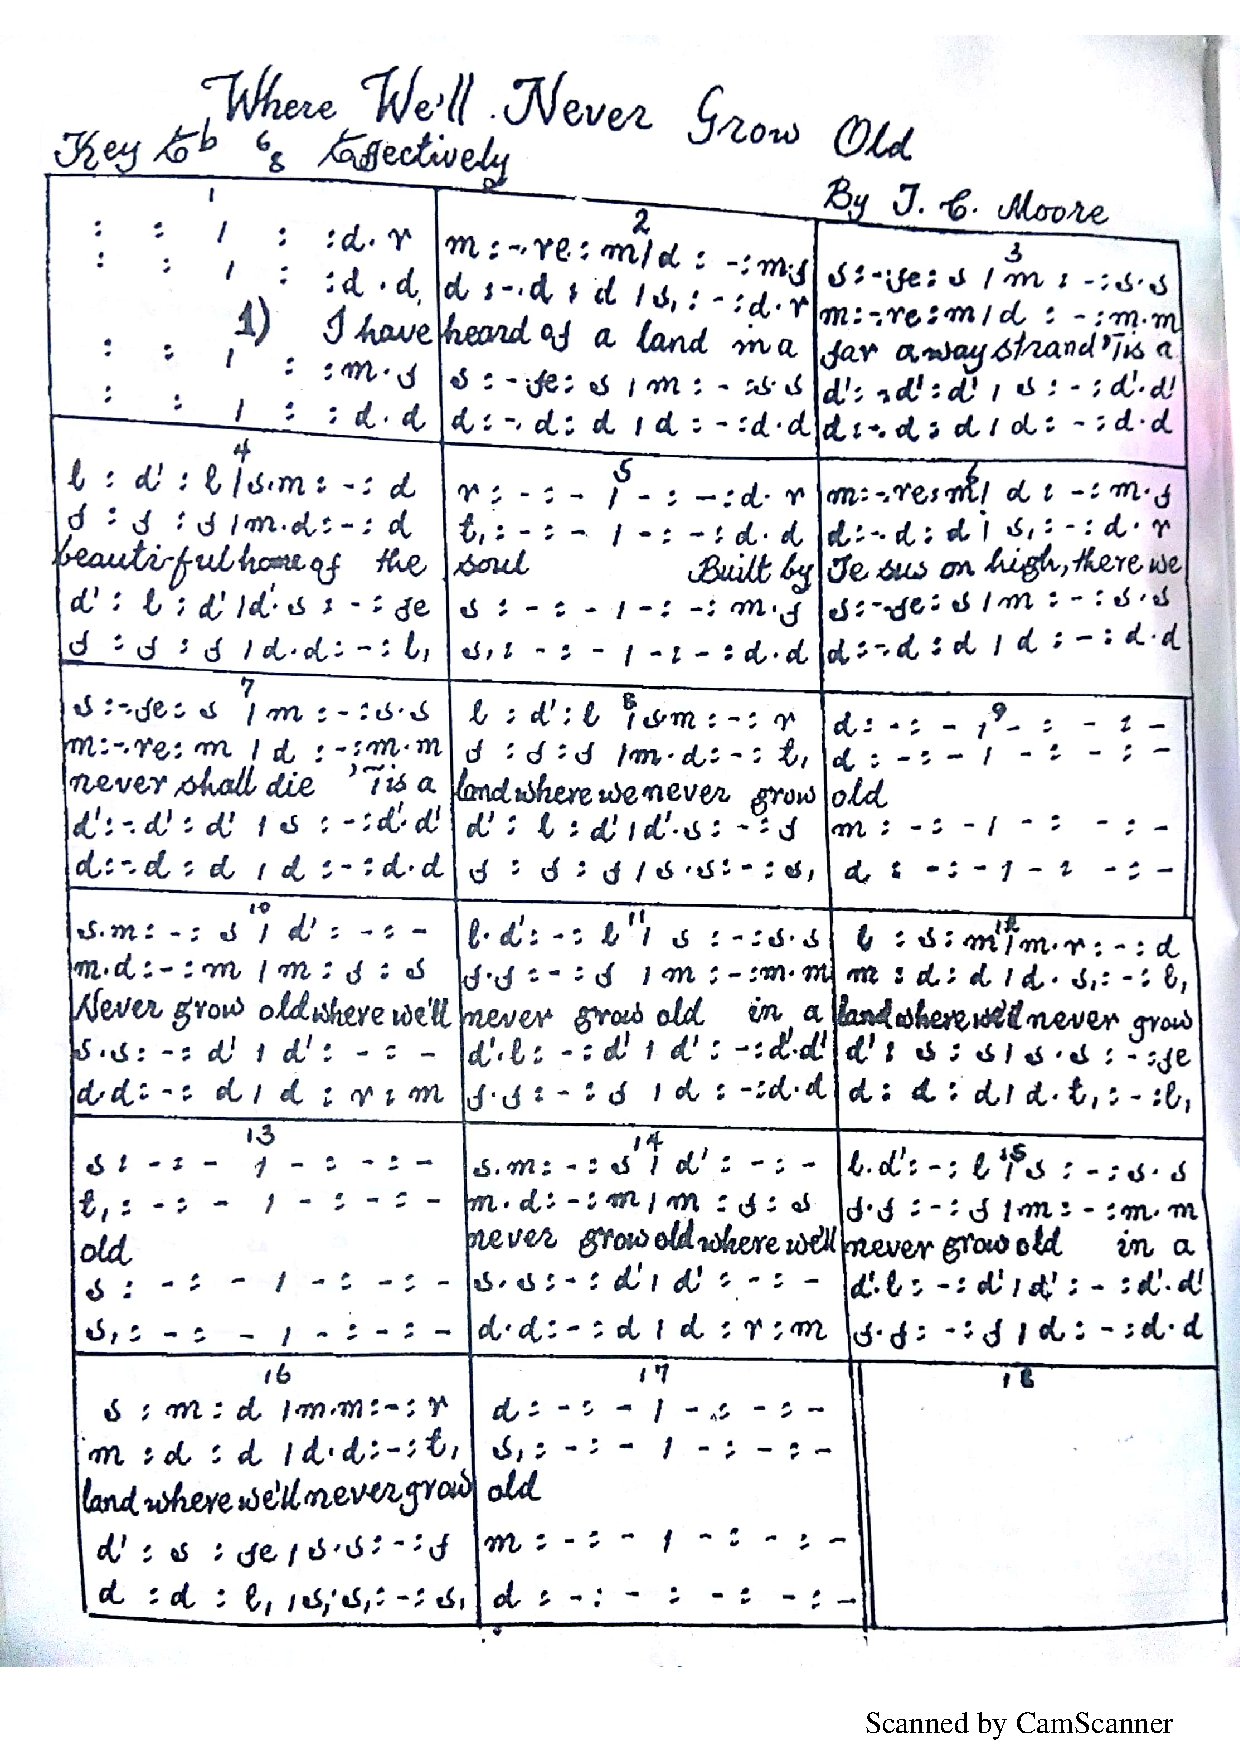 Where We'll Never Grow Old
Key Eb 6/8 Effectively
By J. C. Moore
1
: : / : :d.r
: : / : :d.d
1) I have
: : / : :m.f
: : / : :d.d
2
m:-.re:m/d:-:m.f
d:-.d:d/s,:-:d.r
heard of a land in a
s:-.fe:s/m:-:s.s
d:-.d:d/d:-:d.d
3
s:-.fe:s/m:-:s.s
m:-.re:m/d:-:m.m
far away strand 'Tis a
d':-.d':d'/s:-:d'.d'
d:-.d:d/d:-:d.d
4
l:d':l/s.m:-:d
f:f:f/m.d:-:d
beauti-ful home of the
d':l:d'/d'.s:-:fe
f:f:f/d.d:-:l,
5
r:-:-/-:-:d.r
t,:-:-/-:-:d.d
soul Built by
s:-:-/-:-:m.f
s,:-:-/-:-:d.d
6
m:-.re:m/d:-:m.f
d:-.d:d/s,:-:d.r
Je sus on high, there we
s:-.fe:s/m:-:s.s
d:-.d:d/d:-:d.d
7
s:-.fe:s/m:-:s.s
m:-.re:m/d:-:m.m
never shall die 'Tis a
d':-.d':d'/s:-:d'.d'
d:-.d:d/d:-:d.d
8
l:d':l/s.m:-:r
f:f:f/m.d:-:t,
land where we never grow
d':l:d'/d'.s:-:f
f:f:f/s.s:-:s,
9
d:-:-/-:-:-
d:-:-/-:-:-
old
m:-:-/-:-:-
d:-:-/-:-:-
10
s.m:-:s/d':-:-
m.d:-:m/m:f:s
Never grow old where we'll
s.s:-:d'/d':-:-
d.d:-:d/d:r:m
11
l.d':-:l/s:-:s.s
f.f:-:f/m:-:m.m
never grow old in a
d'.l:-:d'/d':-:d'.d'
f.f:-:f/d:-:d.d
12
l:s:m/m.r:-:d
m:d:d/d.s,:-:l,
land where we'll never grow
d':s:s/s.s:-:fe
d:d:d/d.t,:-:l,
13
s:-:-/-:-:-
t,:-:-/-:-:-
old
s:-:-/-:-:-
s,:-:-/-:-:-
14
s.m:-:s/d':-:-
m.d:-:m/m:f:s
never grow old where we'll
s.s:-:d'/d':-:-
d.d:-:d/d:r:m
15
l.d':-:l/s:-:s.s
f.f:-:f/m:-:m.m
never grow old in a
d'.l:-:d'/d':-:d'.d'
f.f:-:f/d:-:d.d
16
s:m:d/m.m:-:r
m:d:d/d.d:-:t,
land where we'll never grow
d':s:fe/s.s:-:f
d:d:l,/s,.s,:-:s,
17
d:-:-/-:-:-
s,:-:-/-:-:-
old
m:-:-/-:-:-
d:-:-:-:-:-
18
Scanned by CamScanner